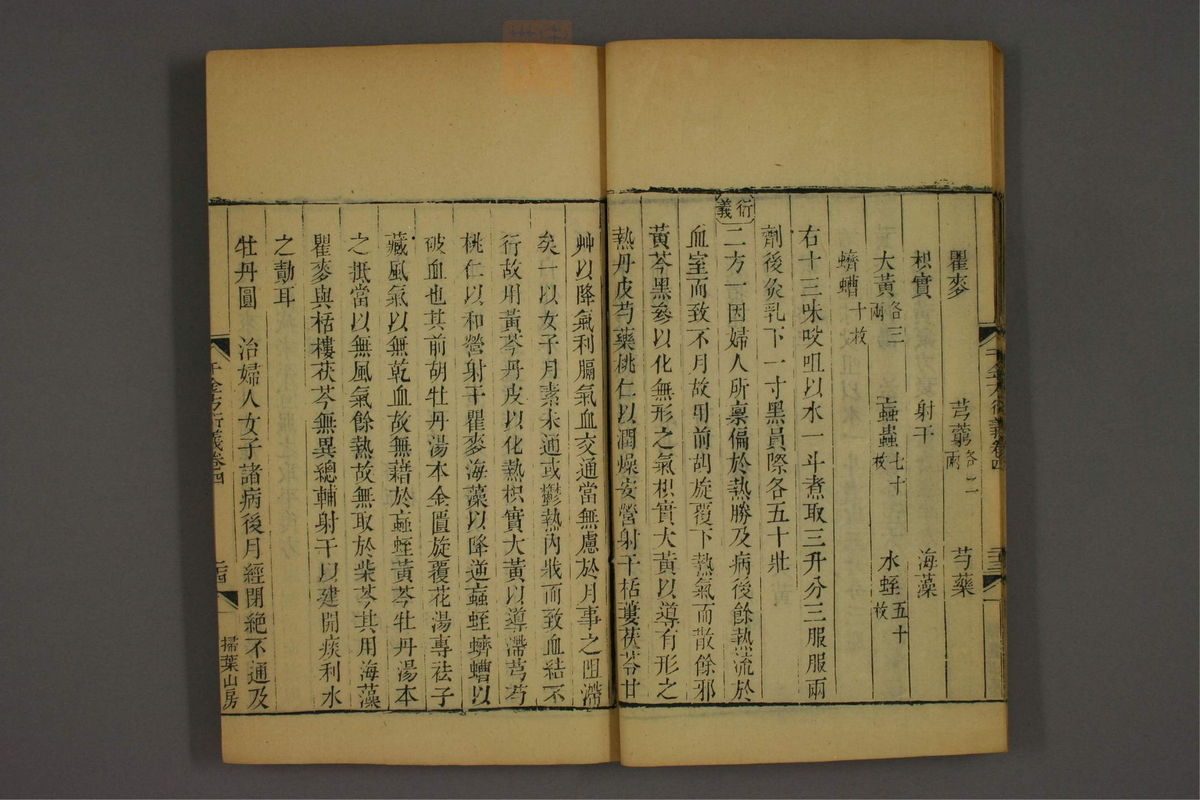 瞿麥 芎藭各二兩 芍藥
枳實 射干 海藻
大黃各三兩 蝱蟲七十枚 水蛭五十枚
蠐螬十枚
右十三味㕮咀以水一斗煮取三升分三服服兩
劑後灸乳下一寸黑員際各五十壯
衍義
二方一因婦人所稟偏於熱勝及病後餘熱流於
血室而致不月故用前胡旋覆下熱氣而散餘邪
黃芩黑參以化無形之氣枳實大黃以導有形之
熱丹皮芍藥桃仁以潤燥安營射干栝蔞茯苓甘
艸以降氣利膈氣血交通當無慮於月事之阻滯
矣一以女子月素未通或鬱熱內戕而致血結不
行故用黃芩丹皮以化熱枳實大黃以導滯芎芍
桃仁以和營射干瞿麥海藻以降逆蝱蛭蠐螬以
破血也其前胡牡丹湯本金匱旋覆花湯專祛子
藏風氣以無乾血故無藉於蝱蛭黃芩牡丹湯本
之抵當以無風氣餘熱故無取於柴芩其用海藻
瞿麥與栝樓茯苓無異總輔射干以建開痰利水
之勣耳
牡丹圓 治婦人女子諸病後月經閉絕不通及
千金方衍義卷四
掃葉山房